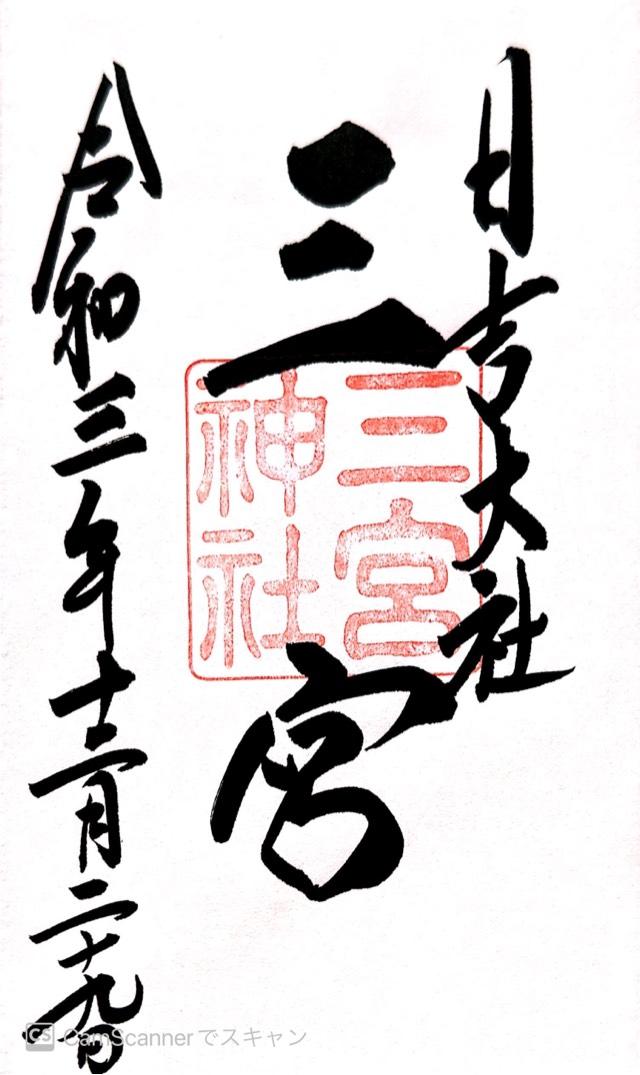 日吉大社
三宮
三宮
神社
令和三年十二月二十九日
CS CamScannerでスキャン